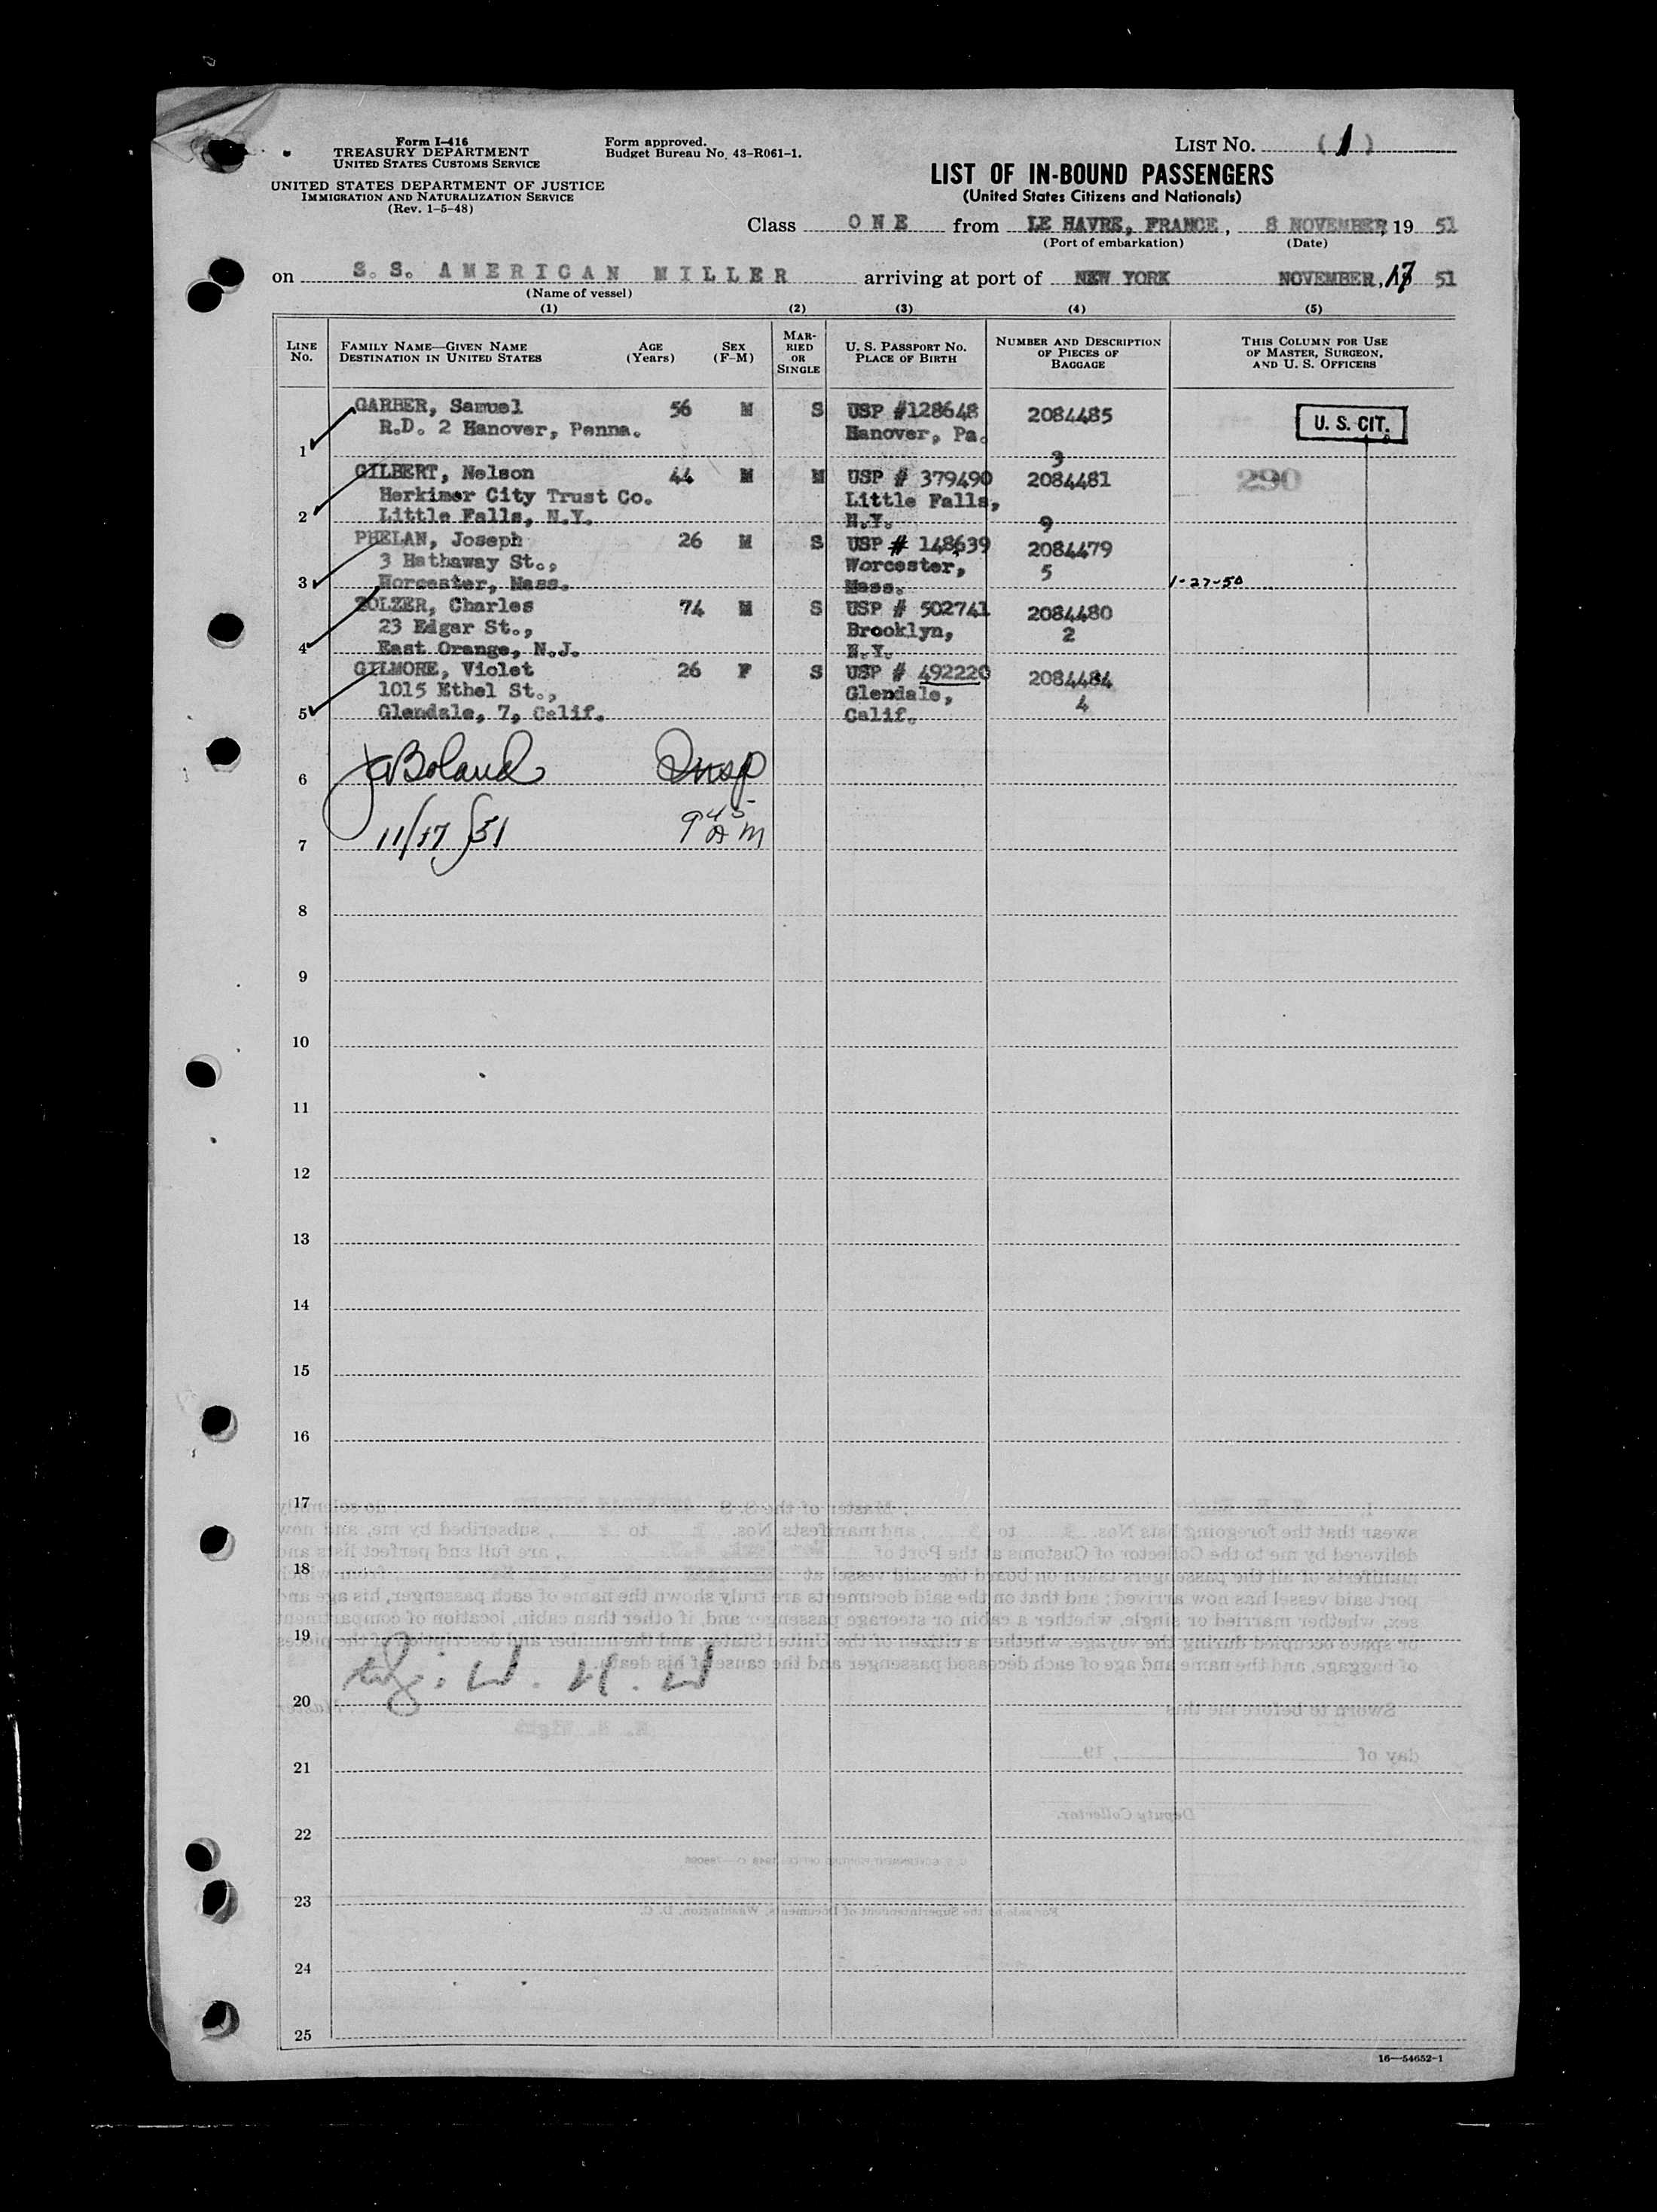 Form I-416
TREASURY DEPARTMENT
UNITED STATES CUSTOMS SERVICE
UNITED STATES DEPARTMENT OF JUSTICE
IMMIGRATION AND NATURALIZATION SERVICE
(Rev. 1-5-48)
Form approved.
Budget Bureau No. 43-R061-1.
LIST NO. (1)
LIST OF IN-BOUND PASSENGERS
(United States Citizens and Nationals)
Class ONE from LE HAVRE, FRANCE, 8 NOVEMBER, 19 51
(Port of embarkation) (Date)
on S.S. AMERICAN MILLER arriving at port of NEW YORK NOVEMBER, 17 51
(Name of vessel)
(1) (2) (3) (4) (5)
LINE NO.
FAMILY NAME—GIVEN NAME
DESTINATION IN UNITED STATES
AGE (Years)
SEX (F-M)
MARRIED OR SINGLE
U. S. PASSPORT NO.
PLACE OF BIRTH
NUMBER AND DESCRIPTION OF PIECES OF BAGGAGE
THIS COLUMN FOR USE OF MASTER, SURGEON, AND U. S. OFFICERS
GARBER, Samuel 56 M S USP #128648 2084485 U. S. CIT.
R.D. 2 Hanover, Penna. Hanover, Pa.
1 3
GILBERT, Nelson 44 M M USP # 379490 2084481 290
Herkimer City Trust Co. Little Falls,
2 Little Falls, N.Y. N.Y. 9
PHELAN, Joseph 26 M S USP # 148639 2084479
3 Hathaway St., Worcester, 5
3 Worcester, Mass. Mass. 1-27-50
ZOLZER, Charles 74 M S USP # 502741 2084480
23 Edgar St., Brooklyn, 2
4 East Orange, N.J. N.Y.
GILMORE, Violet 26 F S USP # 492220 2084484
1015 Ethel St., Glendale, 4
5 Glendale, 7, Calif. Calif.
6 JaBoland Insp
7 11/17/51 9 45 AM
8
9
10
11
12
13
14
15
16
17
18
19
20
21
22
23
24
25
16—54652-1